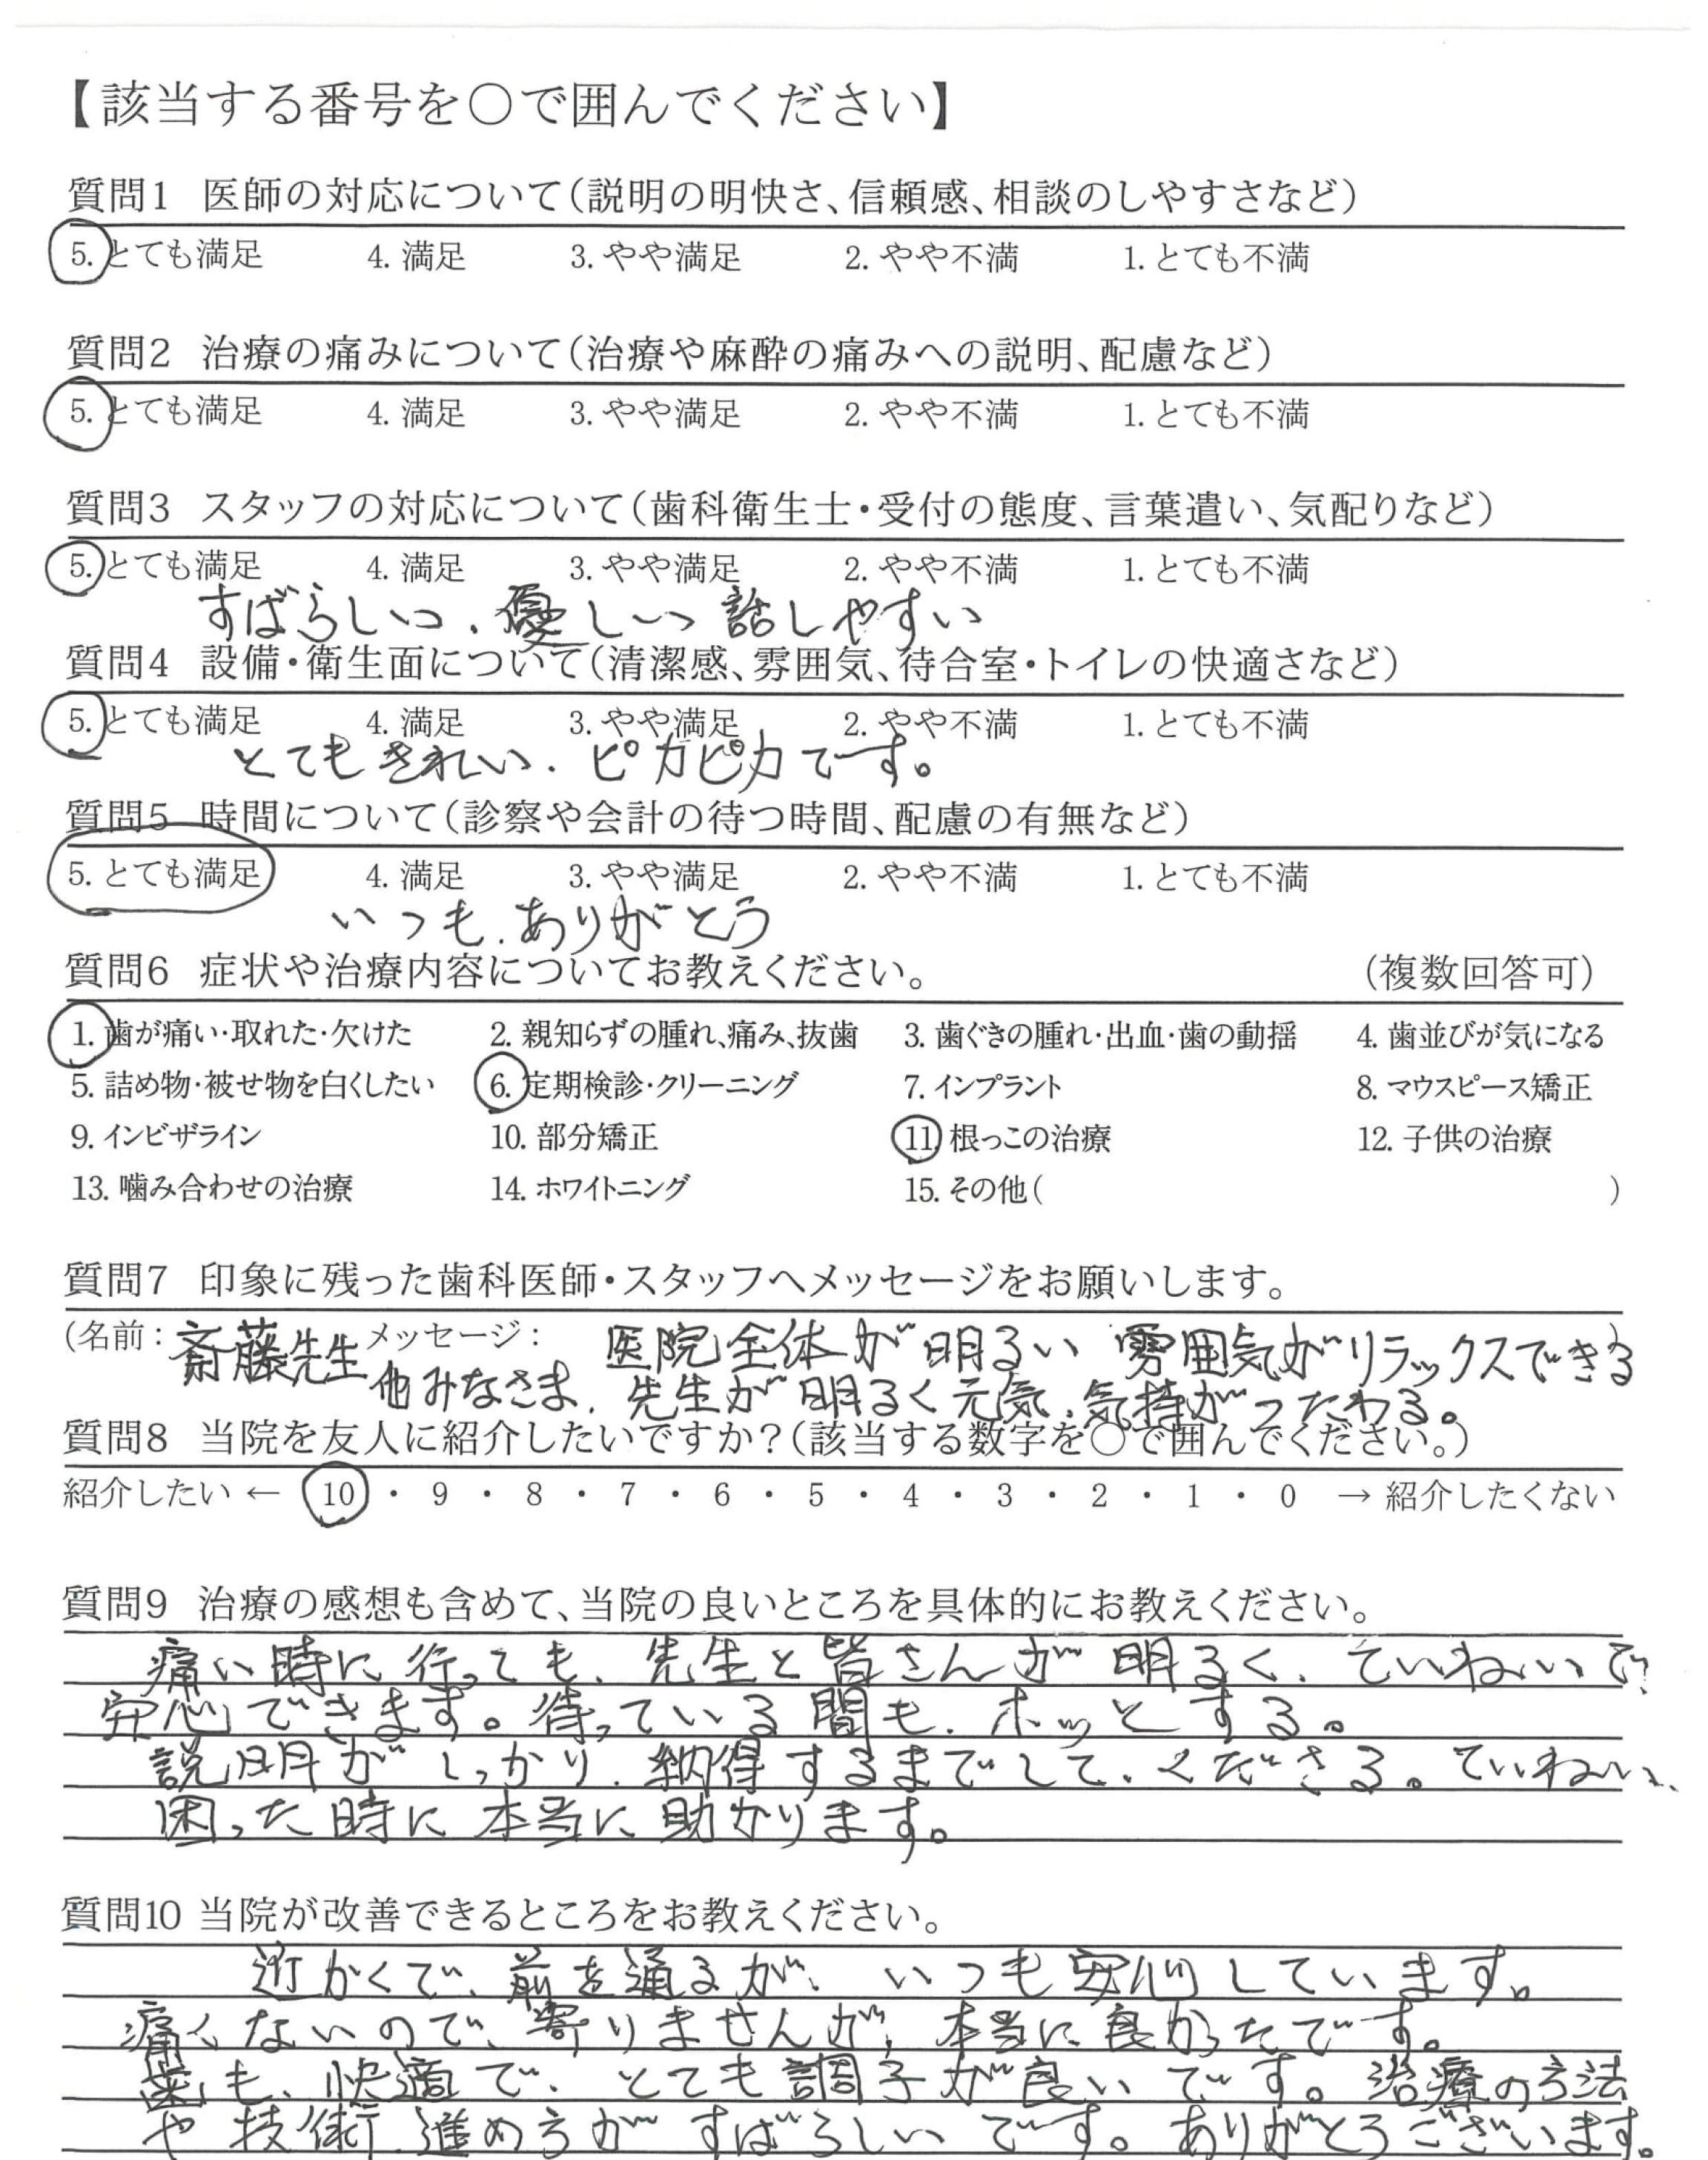 【該当する番号を〇で囲んでください】
質問1 医師の対応について(説明の明快さ、信頼感、相談のしやすさなど)
5. とても満足 4. 満足 3. やや満足 2. やや不満 1. とても不満
質問2 治療の痛みについて(治療や麻酔の痛みへの説明、配慮など)
5. とても満足 4. 満足 3. やや満足 2. やや不満 1. とても不満
質問3 スタッフの対応について(歯科衛生士・受付の態度、言葉遣い、気配りなど)
5. とても満足 4. 満足 3. やや満足 2. やや不満 1. とても不満
すばらしい、優しい 話しやすい
質問4 設備・衛生面について(清潔感、雰囲気、待合室・トイレの快適さなど)
5. とても満足 4. 満足 3. やや満足 2. やや不満 1. とても不満
とてもきれい、ピカピカです。
質問5 時間について(診察や会計の待つ時間、配慮の有無など)
5. とても満足 4. 満足 3. やや満足 2. やや不満 1. とても不満
いつも、ありがとう
質問6 症状や治療内容についてお教えください。 (複数回答可)
1. 歯が痛い・取れた・欠けた 2. 親知らずの腫れ、痛み、抜歯 3. 歯ぐきの腫れ・出血・歯の動揺 4. 歯並びが気になる
5. 詰め物・被せ物を白くしたい 6. 定期検診・クリーニング 7. インプラント 8. マウスピース矯正
9. インビザライン 10. 部分矯正 11 根っこの治療 12. 子供の治療
13. 噛み合わせの治療 14. ホワイトニング 15. その他( )
質問7 印象に残った歯科医師・スタッフへメッセージをお願いします。
(名前: 斎藤先生 メッセージ: 医院全体が明るい 雰囲気がリラックスできる)
他みなさま、先生が明るく元気、気持がつたわる。
質問8 当院を友人に紹介したいですか?(該当する数字を〇で囲んでください。)
紹介したい ← 10 ・ 9 ・ 8 ・ 7 ・ 6 ・ 5 ・ 4 ・ 3 ・ 2 ・ 1 ・ 0 → 紹介したくない
質問9 治療の感想も含めて、当院の良いところを具体的にお教えください。
痛い時に行っても、先生と皆さんが明るく、ていねいで
安心できます。待っている間も、ホッとする。
説明がしっかり、納得するまでして、くださる。ていねい、
困った時に本当に助かります。
質問10 当院が改善できるところをお教えください。
近かくで、前を通るが、いつも安心しています。
痛くないので、寄りませんが、本当に良かったです。
歯も、快適で、とても調子が良いです。治療の方法
や技術、進め方がすばらしいです。ありがとうございます。